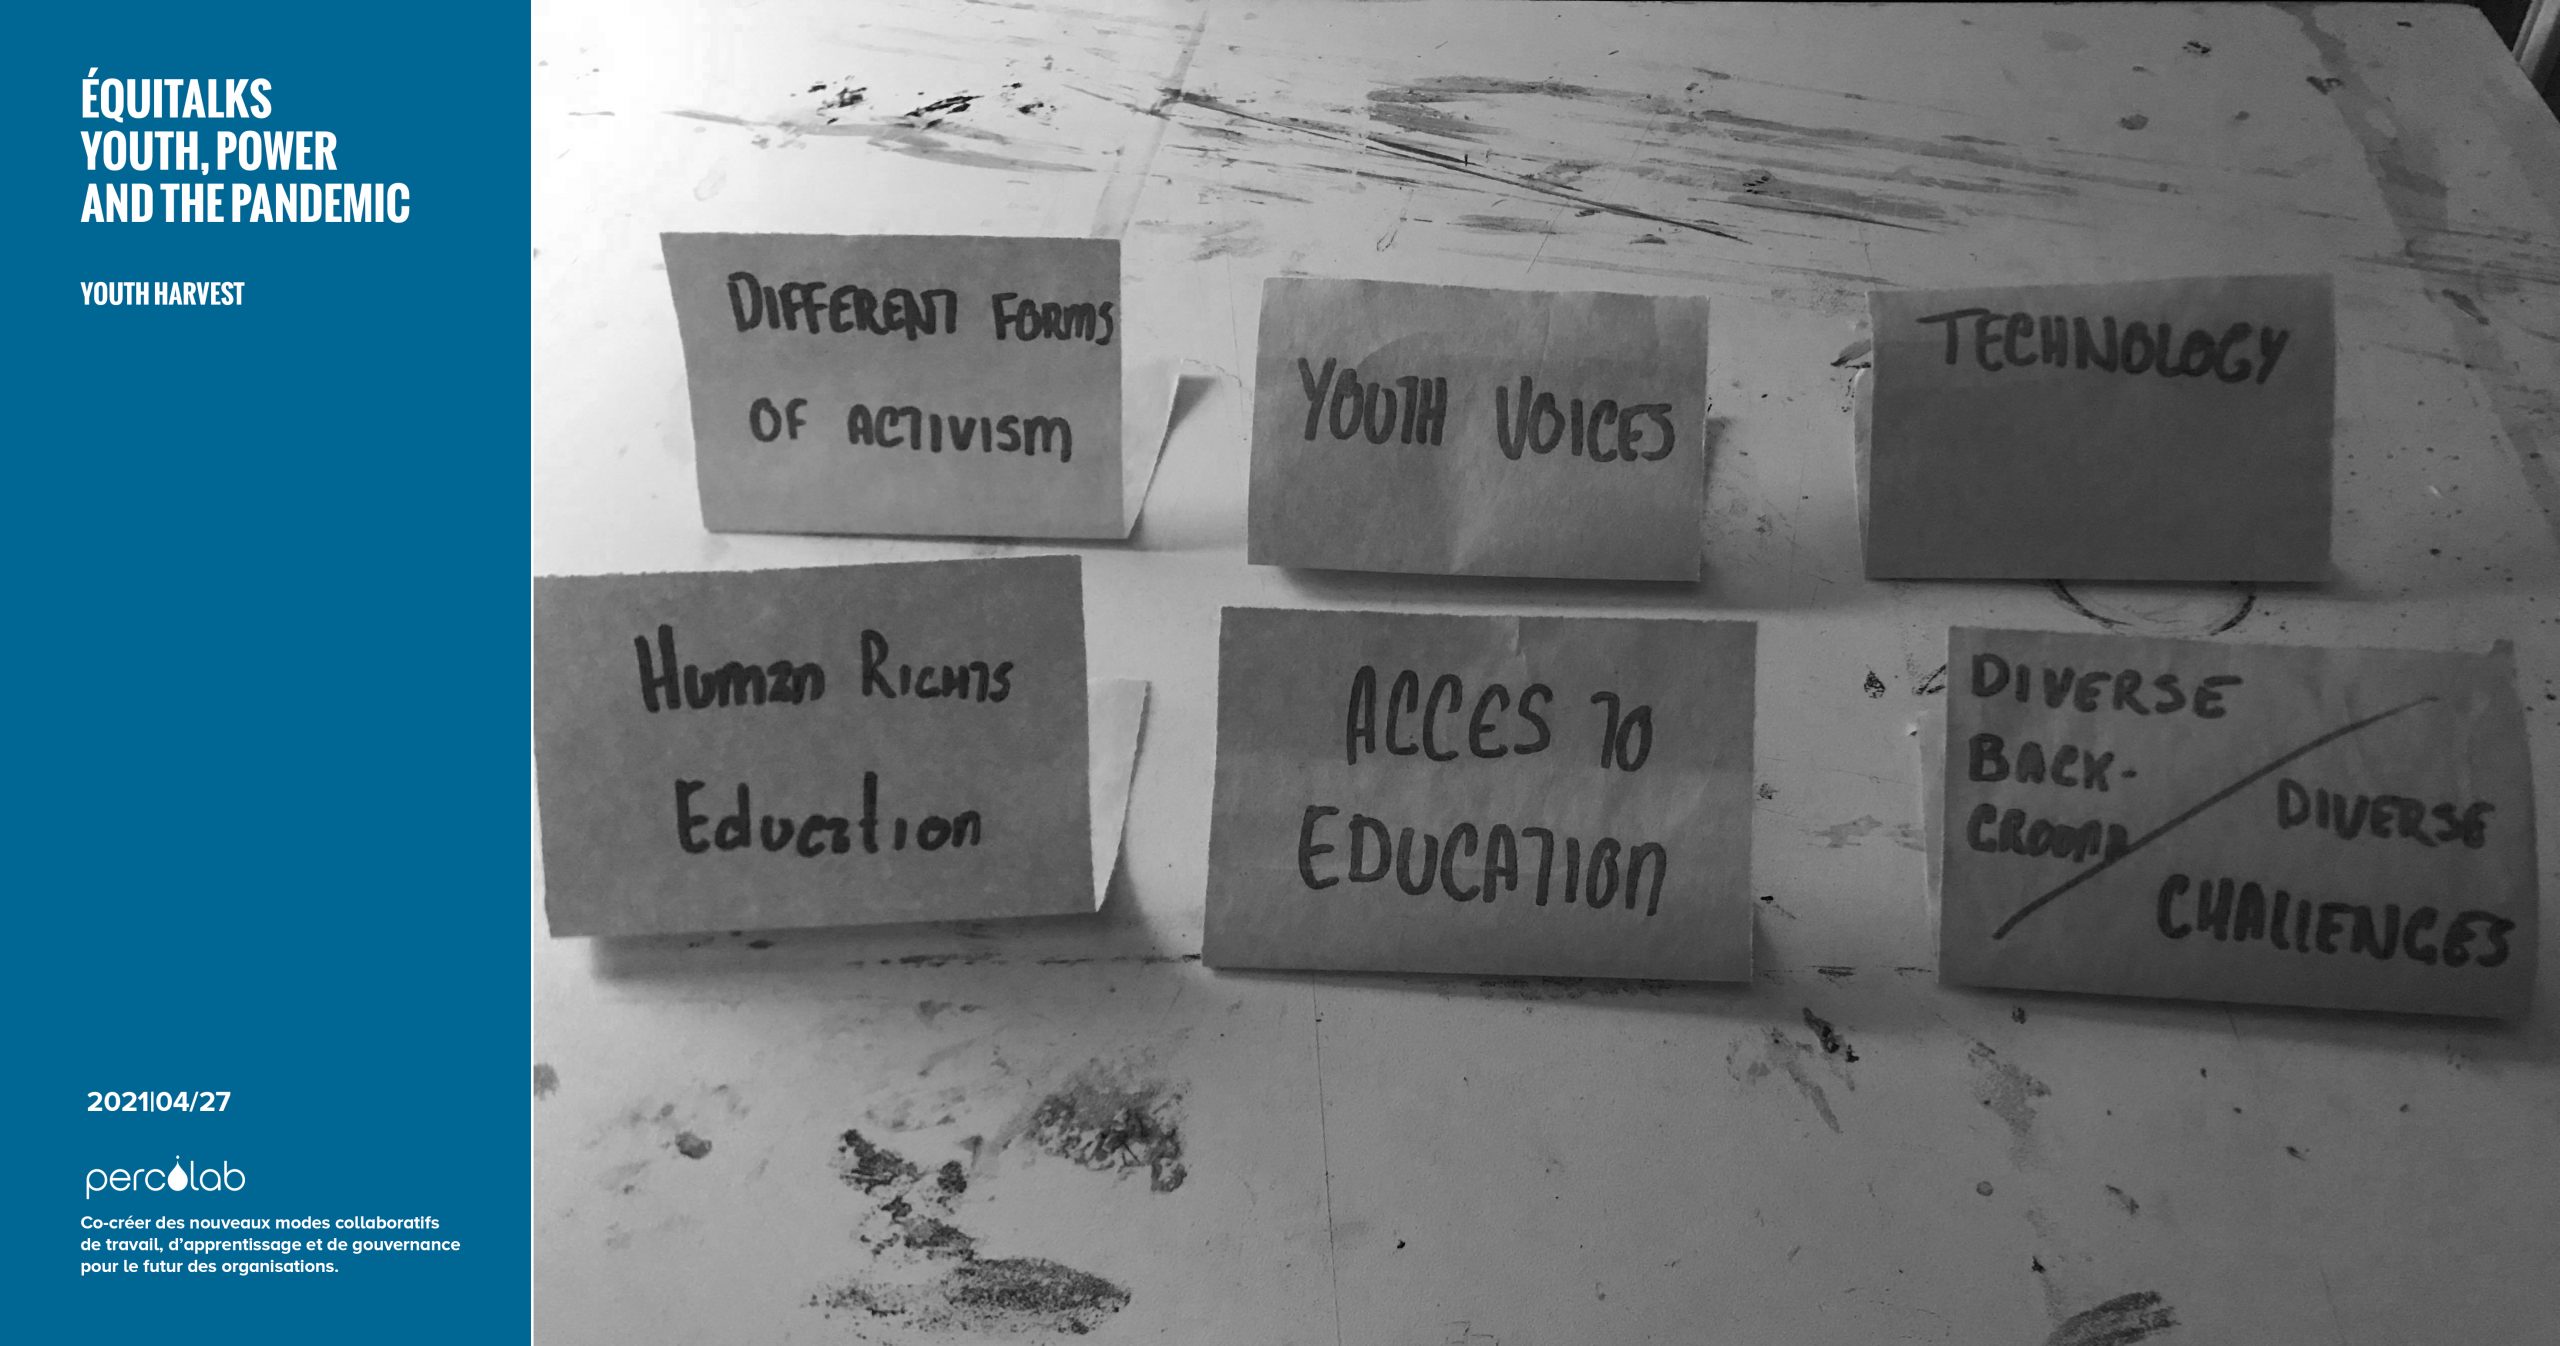 ÉQUITALKS
YOUTH, POWER
AND THE PANDEMIC
YOUTH HARVEST
2021|04/27
percolab
Co-créer des nouveaux modes collaboratifs
de travail, d'apprentissage et de gouvernance
pour le futur des organisations.
DIFFERENT FORMS
OF ACTIVISM
YOUTH VOICES
TECHNOLOGY
Human RIGHTS
Education
ACCES TO
EDUCATION
DIVERSE
BACK-
GROUND
DIVERSE
CHALLENGES